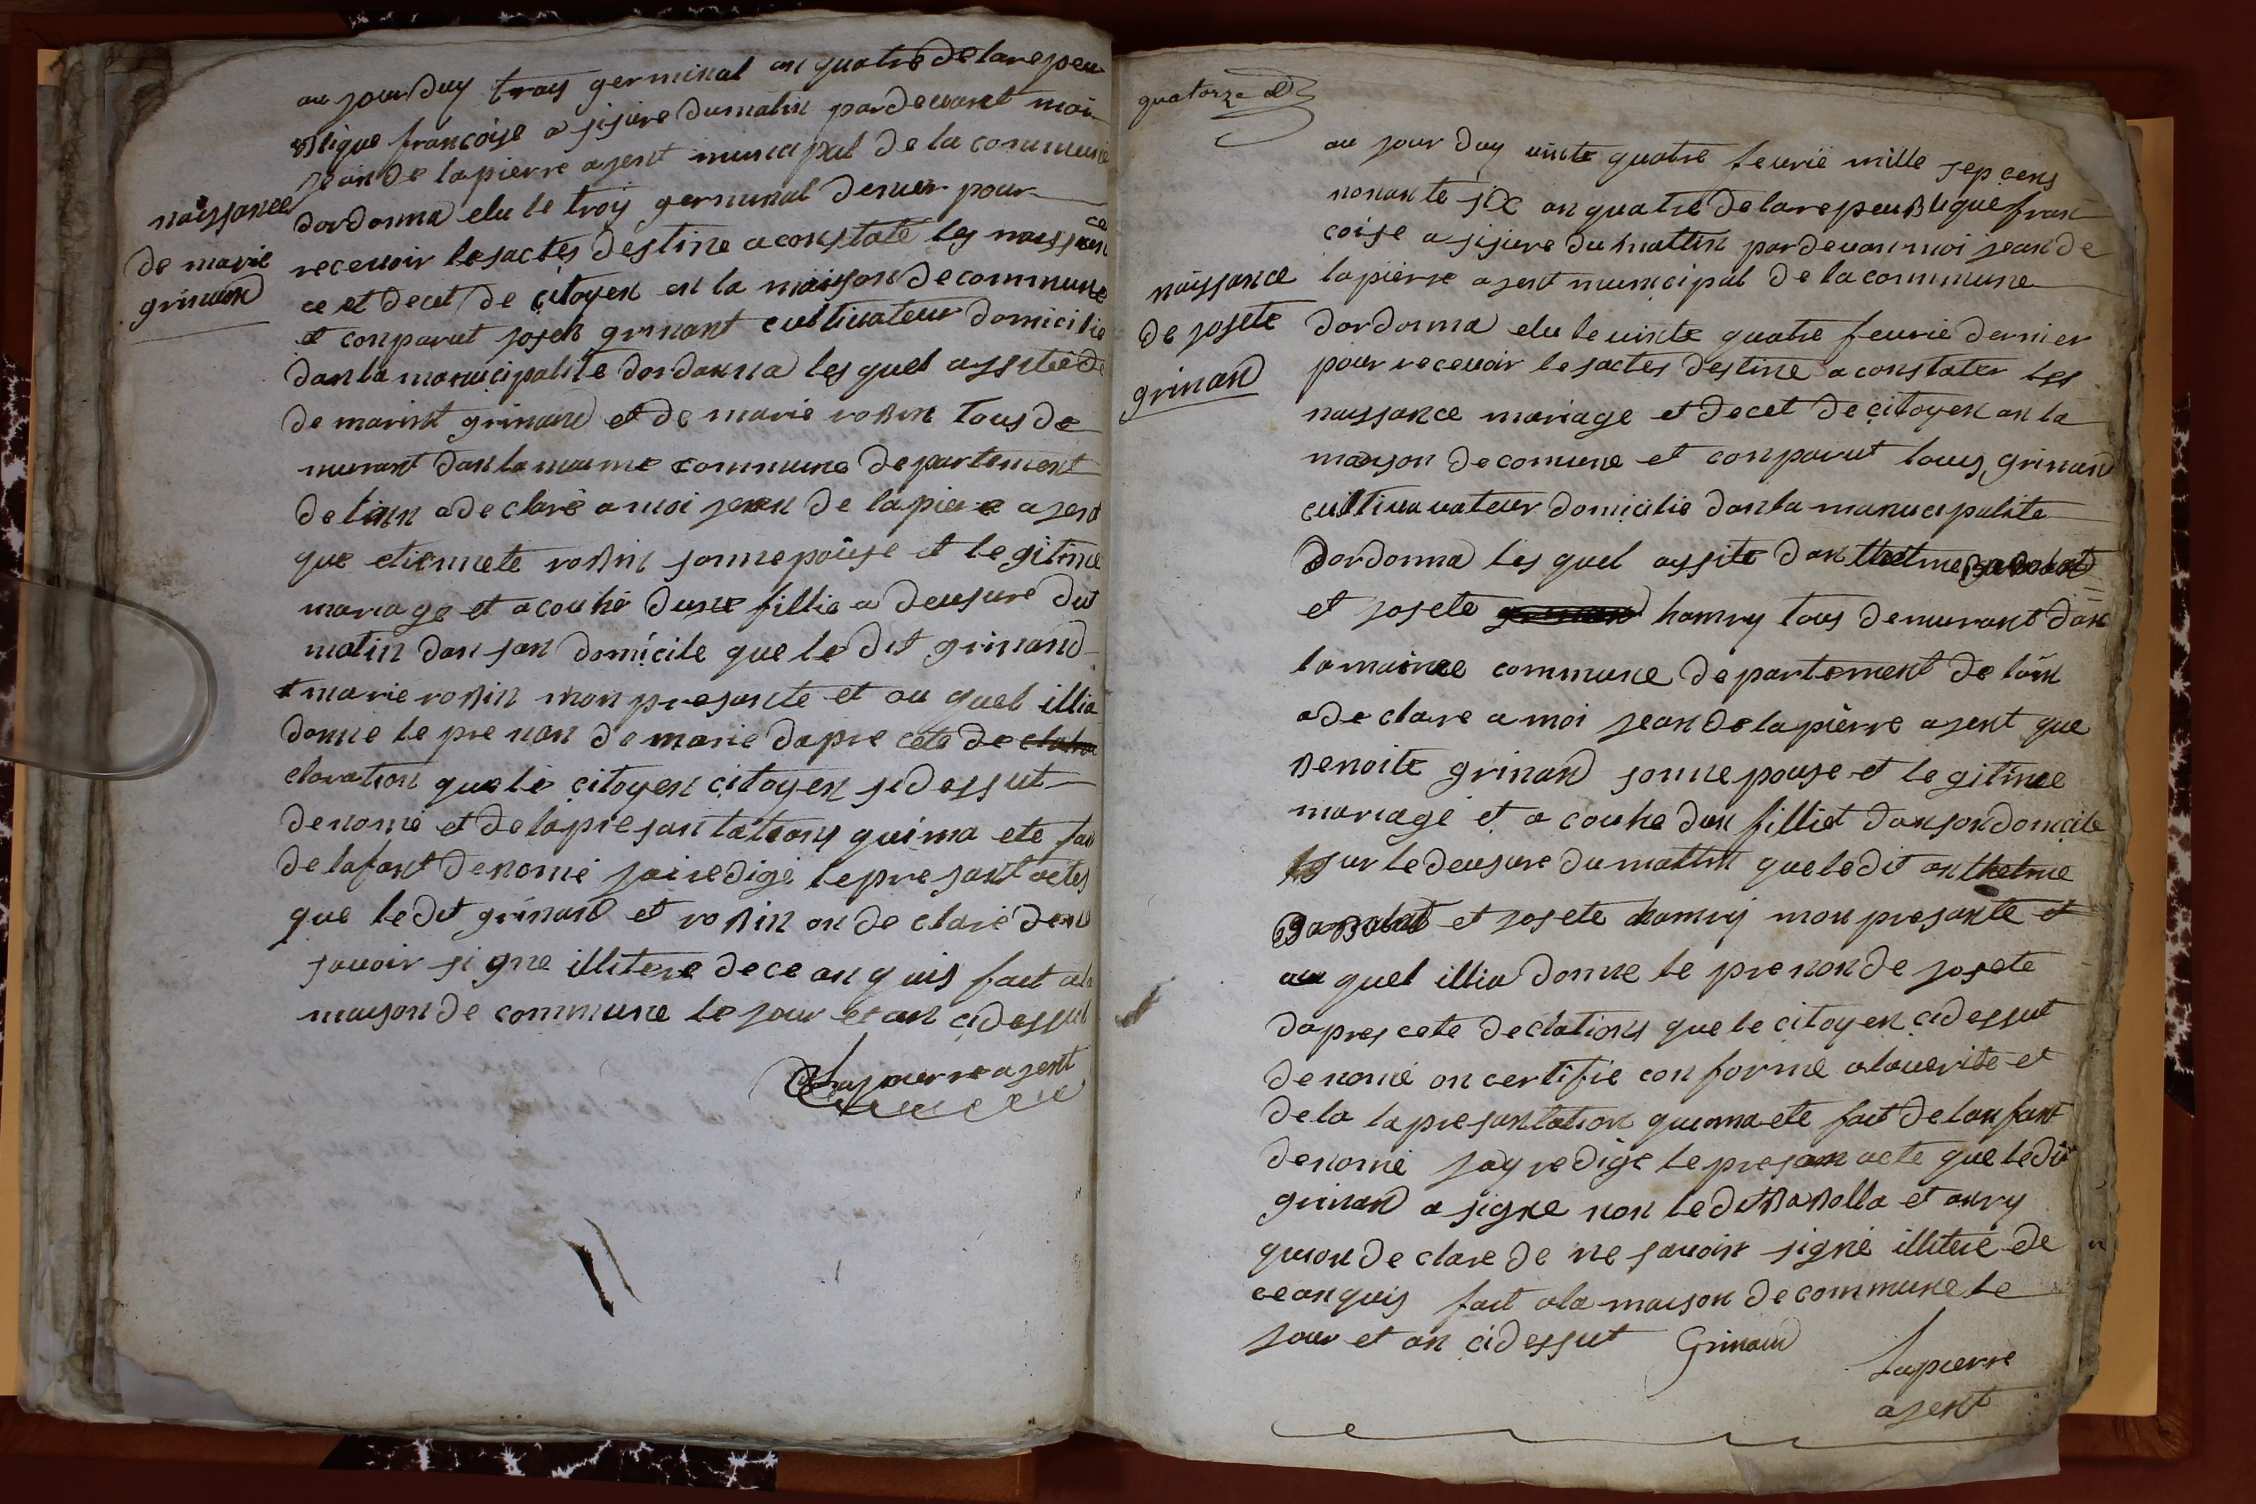 au jour duy troys germinal an quatre de larepeu
blique francoise a sisure dumatin pardevant moi
jean de lapierre agent municipal de la commune
naissance
de marie
grinand
dordonna elu le troys germinal denier pour
recevoir lesactes destine aconstate les naissan
ce et decet de citoyen en la maison decommune
et conparut joseh grinant cultivateur domicilie
dan la manicipalite dordonna les quel assite de
de marint grinand et de marie robin tous de
murant dan la maime commune departement
de linn adeclare a moi jean de lapiere agent
que etiennete robin sonnepouse et legitime
mariage et acouhe dune fillie a deusure dut
matin dan san domicile que le dit grinand
et marie robin mon presante et au quel illia
donne le pre non de marie dapre cete declara
claration que le citoyen citoyen sidessut
denome et de lapresantations quima ete fait
de lafant denome jairedige lepresant actes
que ledit grinand et robin on declare de ne
savoir signe illitere dece anquis fait ala
maison de commune le jour et an cidessut
Lapierre agent
quatorze
au jour duy vinte quatre fevrie mille sep cens
nonante six an quatre delarepeublique fran
coise a sisure du mattin pardevan moi jean de
lapierre agent municipal de la commune
naissance
de josete
grinand
dordonna elu le vinte quatre fevrie dernier
pour recevoir lesactes destine a constater les
naissance mariage et decet de citoyen an la
maison decomune et conparut louis grinand
cultivavateur domicilie dan la manicipalite
dordonna les quel assite dan thelme babolat
et josete hamry tous demurant dan
la maime commune departement de loin
adeclare a moi jean de lapierre agent que
benoite grinand sonnepouse et legitime
mariage et a couhe dun filliet dansondomicile
sur ledeusure dumattin queledit anthelme
babolat et josete hamry mon presante et
au quel illia donne le prenonde josete
dapres cete declations que le citoyen cidessut
denome on certifie conforme alaverite et
dela lapresantation quimaete fait delanfant
denome jay redige lepresan acte queledit
grinand a signe non ledit babolla et amry
quion declare de ne savoir signe illitere de
ceanquis fait ala maison decommune le
jour et an cidessut Grinand
Lapierre
agent